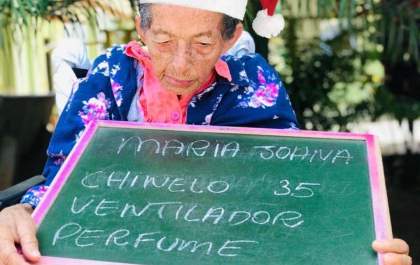 MARIA JOANA
CHINELO 35
VENTILADOR
PERFUME